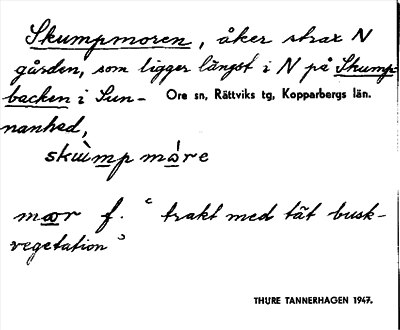 Skumpmoren, åker strax N
gården, som ligger längst i N på Skump-
backen i Sun- Ore sn, Rättviks tg, Kopparbergs län.
nanhed,
skùmp måre
mær f. "trakt med tät busk-
vegetation"
THURE TANNERHAGEN 1947.